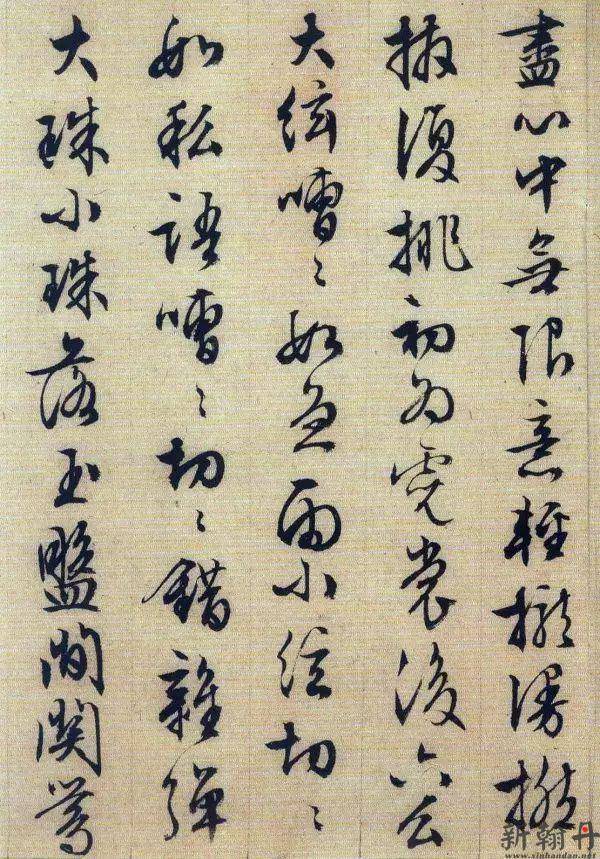 盡心中無限意輕攏漫撚
抹復挑初為霓裳後六么
大絃嘈〻如急雨小絃切〻
如私語嘈〻切〻錯雜彈
大珠小珠落玉盤間關鶯
新翰丹
www.xinhandan.net